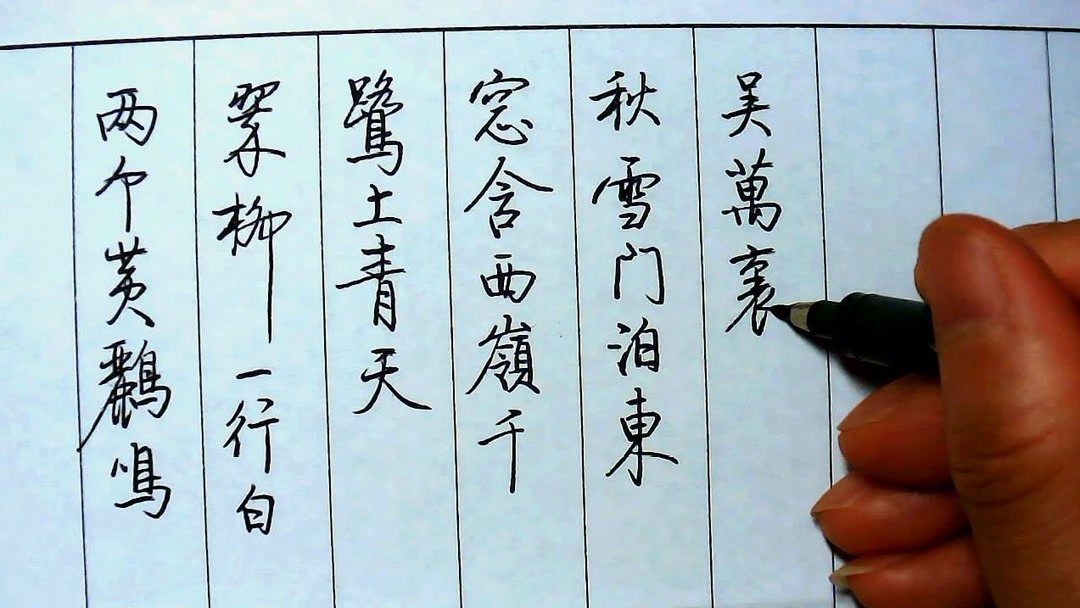 两个黄鸝鳴
翠柳一行白
鷺上青天
窓含西嶺千
秋雪门泊東
吴萬裏